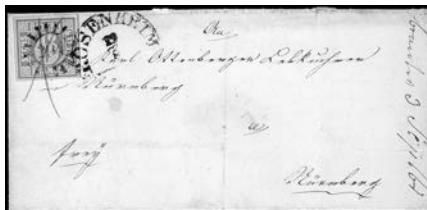 ROSENHEIM
An
Karl Ottenberger Lebküchner
Nürnberg
a
frey
Nürnberg